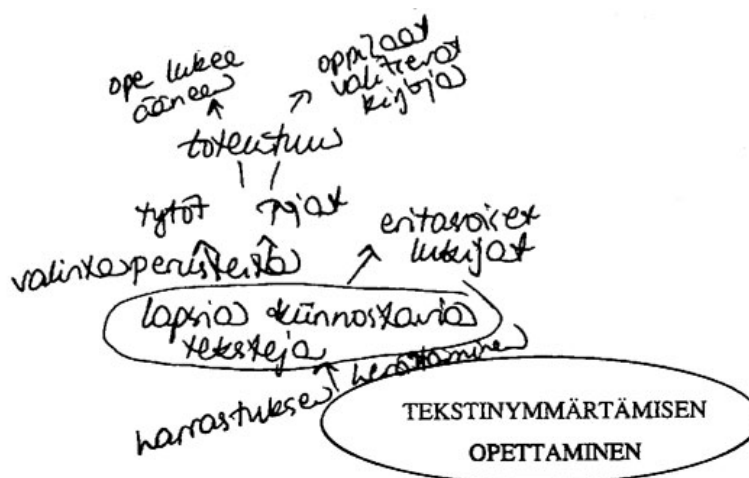 ope lukee
ääneen
oppilaat
valitsevat
kirjoja
toteutuu
tytöt
pojat
eritasoiset
lukijat
valintaperusteita
lapsia kiinnostavia
tekstejä
harrastuksen herättäminen
TEKSTINYMMÄRTÄMISEN
OPETTAMINEN